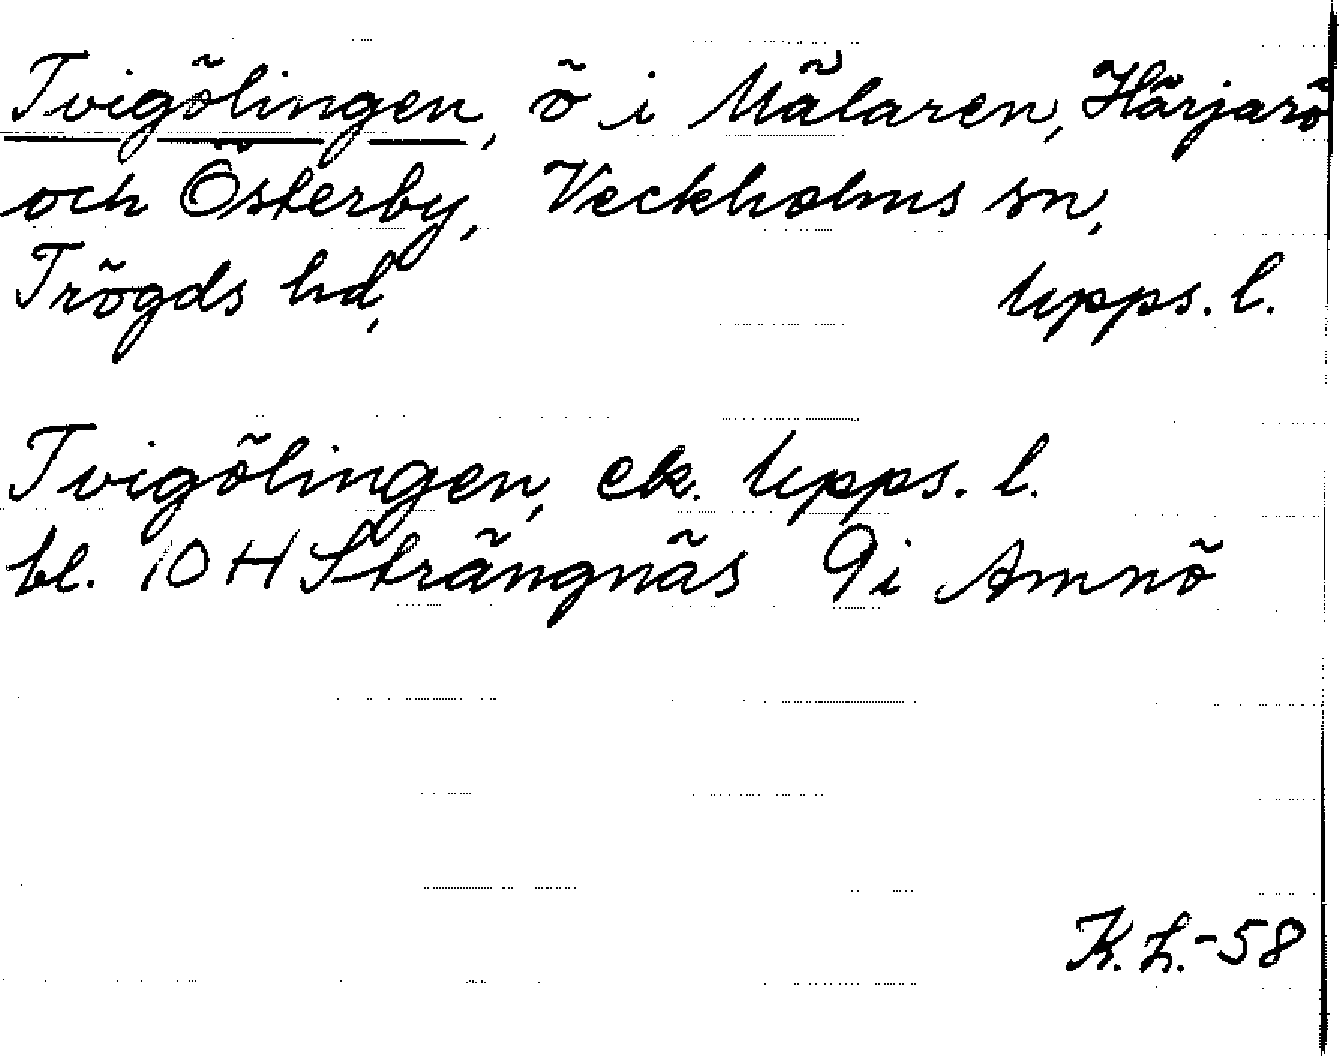 Tvigölingen, ö i Mälaren, Härjarö
och Österby, Veckholms sn,
Trögds hd, Upps. l.
Tvigölingen, ek. Upps. l.
bl. 10 H Strängnäs 9i Amnö
K.L.-58